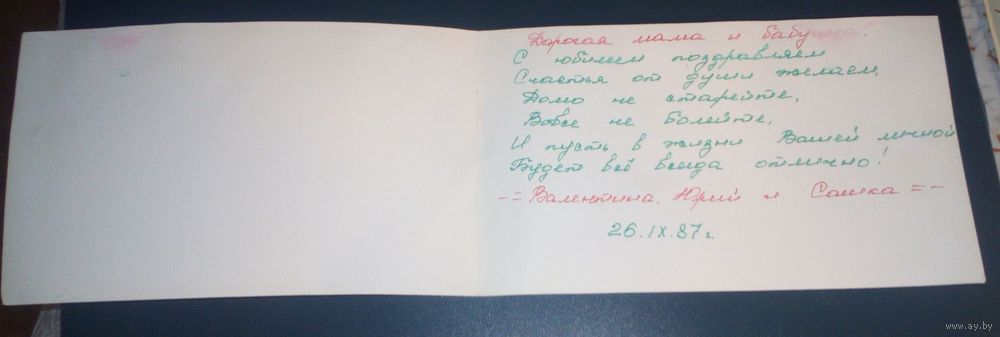 Дорогая мама и бабушка!
С юбилеем поздравляем,
Счастья от души желаем.
Долго не старейте,
Вовсе не болейте,
И пусть в жизни Вашей личной
Будет всё всегда отлично!
-= Валентина, Юрий и Сашка =-
26.IX.87г.
www.ay.by